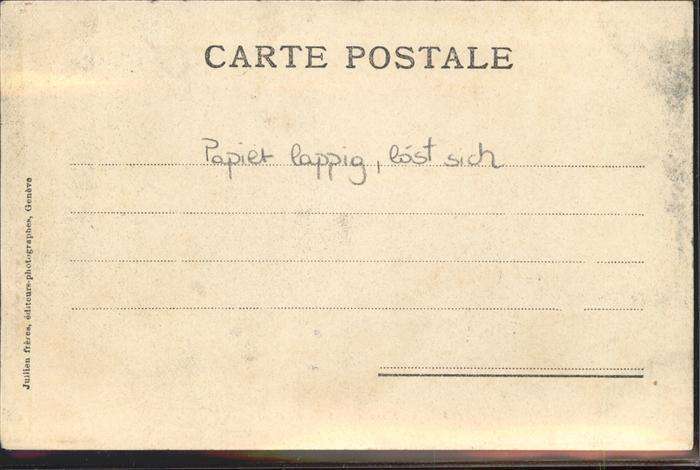 CARTE POSTALE
Papier lappig, löst sich
Jullien frères, éditeurs-photographes, Genève